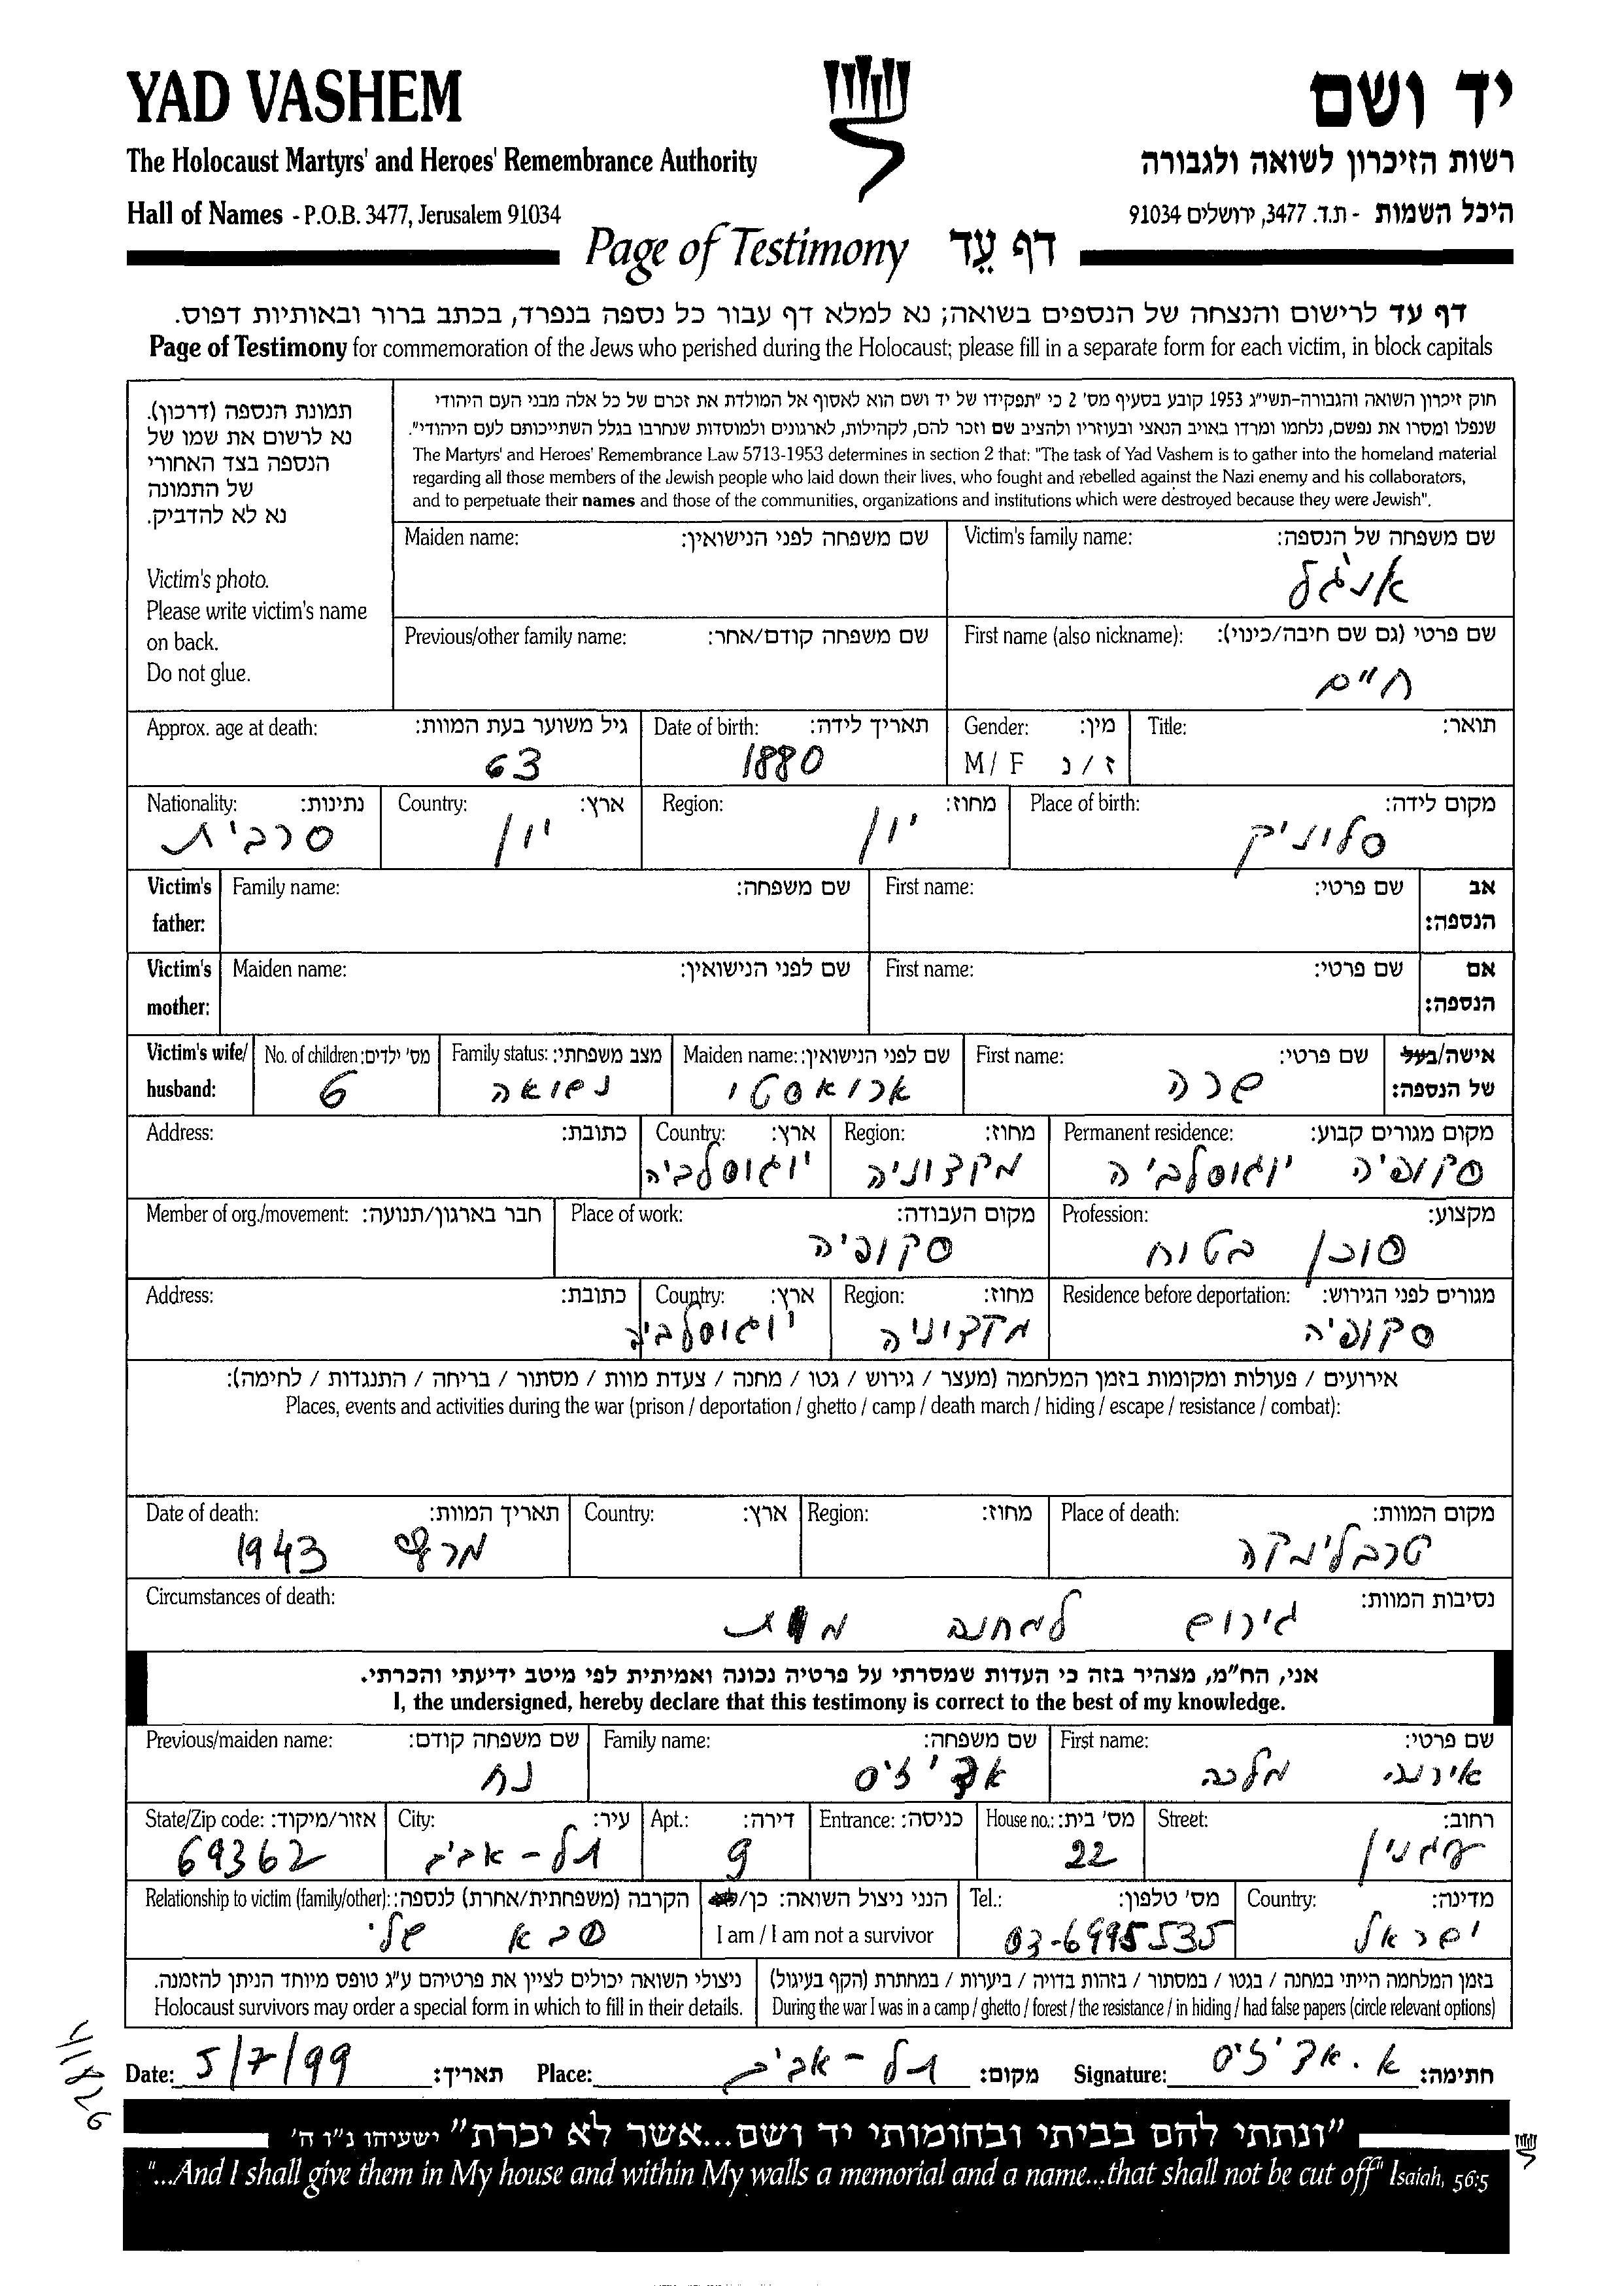 YAD VASHEM
יד ושם
The Holocaust Martyrs' and Heroes' Remembrance Authority
רשות הזיכרון לשואה ולגבורה
Hall of Names - P.O.B. 3477, Jerusalem 91034
היכל השמות - ת.ד. 3477, ירושלים 91034
Page of Testimony דף עֵד
דף עד לרישום והנצחה של הנספים בשואה; נא למלא דף עבור כל נספה בנפרד, בכתב ברור ובאותיות דפוס.
Page of Testimony for commemoration of the Jews who perished during the Holocaust; please fill in a separate form for each victim, in block capitals
תמונת הנספה (דרכון).
נא לרשום את שמו של
הנספה בצד האחורי
של התמונה
נא לא להדביק.
Victim's photo.
Please write victim's name
on back.
Do not glue.
חוק זיכרון השואה והגבורה-תשי"ג 1953 קובע בסעיף מס' 2 כי "תפקידו של יד ושם הוא לאסוף אל המולדת את זכרם של כל אלה מבני העם היהודי
שנפלו ומסרו את נפשם, נלחמו ומרדו באויב הנאצי ובעוזריו ולהציב שם וזכר להם, לקהילות, לארגונים ולמוסדות שנחרבו בגלל השתייכותם לעם היהודי".
The Martyrs' and Heroes' Remembrance Law 5713-1953 determines in section 2 that: "The task of Yad Vashem is to gather into the homeland material
regarding all those members of the Jewish people who laid down their lives, who fought and rebelled against the Nazi enemy and his collaborators,
and to perpetuate their names and those of the communities, organizations and institutions which were destroyed because they were Jewish".
Victim's family name: שם משפחה של הנספה:
אנג'ל
Maiden name: שם משפחה לפני הנישואין:
First name (also nickname): שם פרטי (גם שם חיבה/כינוי):
חיים
Previous/other family name: שם משפחה קודם/אחר:
Title: תואר:
Gender: מין:
M / F ז / נ
Date of birth: תאריך לידה:
1880
Approx. age at death: גיל משוער בעת המוות:
63
Place of birth: מקום לידה:
סלוניק
Region: מחוז:
יוון
Country: ארץ:
יוון
Nationality: נתינות:
סרבית
Victim's father: אב הנספה:
First name: שם פרטי:
Family name: שם משפחה:
Victim's mother: אם הנספה:
First name: שם פרטי:
Maiden name: שם לפני הנישואין:
Victim's wife/ husband: אישה/בעל של הנספה:
First name: שם פרטי:
שרה
Maiden name: שם לפני הנישואין:
ארואסטי
Family status: מצב משפחתי:
נשואה
No. of children: מס' ילדים:
6
Permanent residence: מקום מגורים קבוע:
סקופיה יוגוסלביה
Region: מחוז:
מקדוניה
Country: ארץ:
יוגוסלביה
Address: כתובת:
Profession: מקצוע:
סוכן בטוח
Place of work: מקום העבודה:
סקופיה
Member of org./movement: חבר בארגון/תנועה:
Residence before deportation: מגורים לפני הגירוש:
סקופיה
Region: מחוז:
מקדוניה
Country: ארץ:
יוגוסלביה
Address: כתובת:
אירועים / פעולות ומקומות בזמן המלחמה (מעצר / גירוש / גטו / מחנה / צעדת מוות / מסתור / בריחה / התנגדות / לחימה):
Places, events and activities during the war (prison / deportation / ghetto / camp / death march / hiding / escape / resistance / combat):
Place of death: מקום המוות:
טרבלינקה
Region: מחוז:
Country: ארץ:
Date of death: תאריך המוות:
מרץ 1943
Circumstances of death: נסיבות המוות:
גירוש למחנה מות
אני, הח"מ, מצהיר בזה כי העדות שמסרתי על פרטיה נכונה ואמיתית לפי מיטב ידיעתי והכרתי.
I, the undersigned, hereby declare that this testimony is correct to the best of my knowledge.
First name: שם פרטי:
אירנה מלכה
Family name: שם משפחה:
אדיז'ס
Previous/maiden name: שם משפחה קודם:
נח
Street: רחוב:
עגנון
House no.: מס' בית:
22
Entrance: כניסה:
Apt.: דירה:
9
City: עיר:
תל-אביב
State/Zip code: אזור/מיקוד:
69362
Country: מדינה:
ישראל
Tel.: מס' טלפון:
03-6995535
הנני ניצול השואה: כן/לא
I am / I am not a survivor
Relationship to victim (family/other): הקרבה (משפחתית/אחרת) לנספה:
סבא שלי
בזמן המלחמה הייתי במחנה / בגטו / במסתור / בזהות בדויה / ביערות / במחתרת (הקף בעיגול)
During the war I was in a camp / ghetto / forest / the resistance / in hiding / had false papers (circle relevant options)
ניצולי השואה יכולים לציין את פרטיהם ע"ג טופס מיוחד הניתן להזמנה.
Holocaust survivors may order a special form in which to fill in their details.
Date: 5/7/99 תאריך:
Place: תל-אביב מקום:
Signature: א. אדיז'ס חתימה:
"ונתתי להם בביתי ובחומותי יד ושם...אשר לא יכרת" ישעיהו נ"ו ה'
"...And I shall give them in My house and within My walls a memorial and a name...that shall not be cut off" Isaiah, 56:5